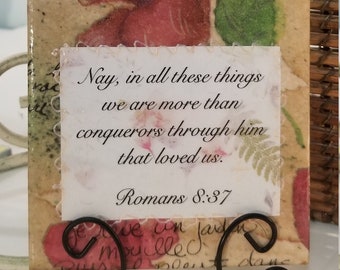 Nay, in all these things
we are more than
conquerors through him
that loved us.
Romans 8:37
un jardin
mouillé
dans